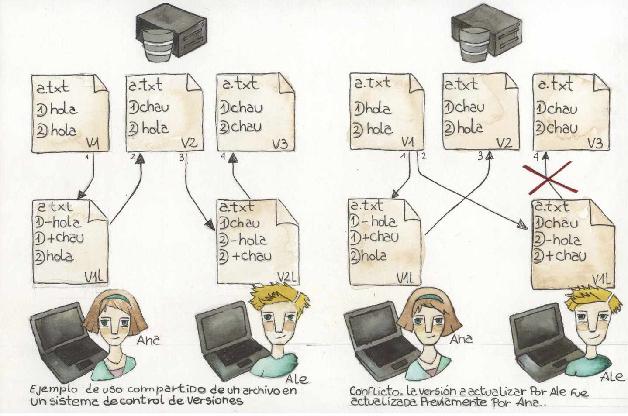 a.txt
1) hola
2) hola
V1
a.txt
1) chau
2) hola
V2
a.txt
1) chau
2) chau
V3
1
2
3
4
a.txt
1) -hola
1) +chau
2) hola
V1L
a.txt
1) chau
2) -hola
2) +chau
V2L
Ana
Ale
Ejemplo de uso compartido de un archivo en
un sistema de control de versiones
a.txt
1) hola
2) hola
V1
a.txt
1) chau
2) hola
V2
a.txt
1) chau
2) chau
V3
1
2
3
4
a.txt
1) -hola
1) +chau
2) hola
V1L
a.txt
1) chau
2) -hola
2) +chau
V1L
Ana
Ale
Conflicto. la versión a actualizar Por Ale fue
actualizada Previamente Por Ana..